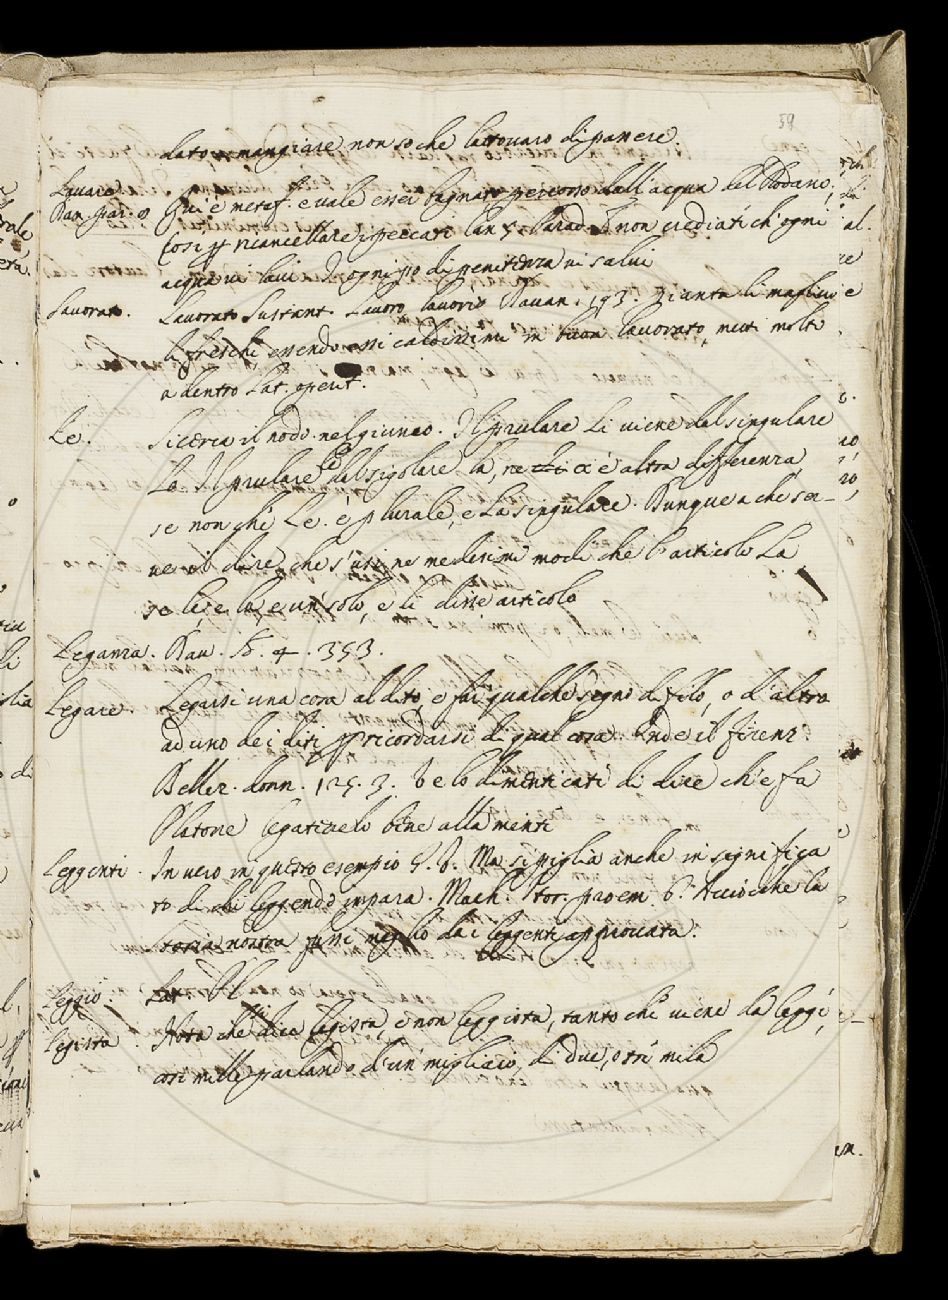 59
dato mangiare non so che lattovaro di pavere.
Lavare. Qui è metaf. e vale esser bagnato percosso dall'acqua del Rodano,
Dan. Par. 8 Così ꝑ ricancellare i peccati Can 5. Parad. E non crediati ch'ogni
acqua vi lavi
Lavorato. Lavorato Sustant. Lavoro, lavorio Davan. 193. Pianta li magliuoli
li freschi essendo essi caldissimi in buon lavorato, meti molto
a dentro Lat. operit.
Le. Si cerca il nodo nel giunco. Il prulare Li viene dal singulare
Lo Il prulare Le dal sigolare la, ne ci è altra differenza,
se non chè Le. è plurale, e La singulare. Dunque a che ser-
ve il dire, che s'usi ne medesimi modi che l'articolo La
se le, e la, e un' solo, e li disse articolo
Leganza. Dav. St. 4. 353.
Legare. Legarsi una cosa al dito, e far qualche segno di filo, o d'altro
ad uno de i diti ꝑ ricordarsi di qual cosa. Onde il Firenz
Bellez. donn. 125. 3. Ve lo dimenticati di dire ch'e fa
Platone legativelo bene alla menti
Leggenti. In vero in questo esempio S. P. Ma si piglia anche in significa
to di chi leggendo impara. Mach. Stor. proem. 6. Acciocche la
storia nostra fussi meglio da i leggenti approvata.
Leggio. Lat. Pl
Legista. Nota che dice legista, e non leggista, tanto che viene da leggi,
così mille parlando d'un' migliaio, di due, o trè mila